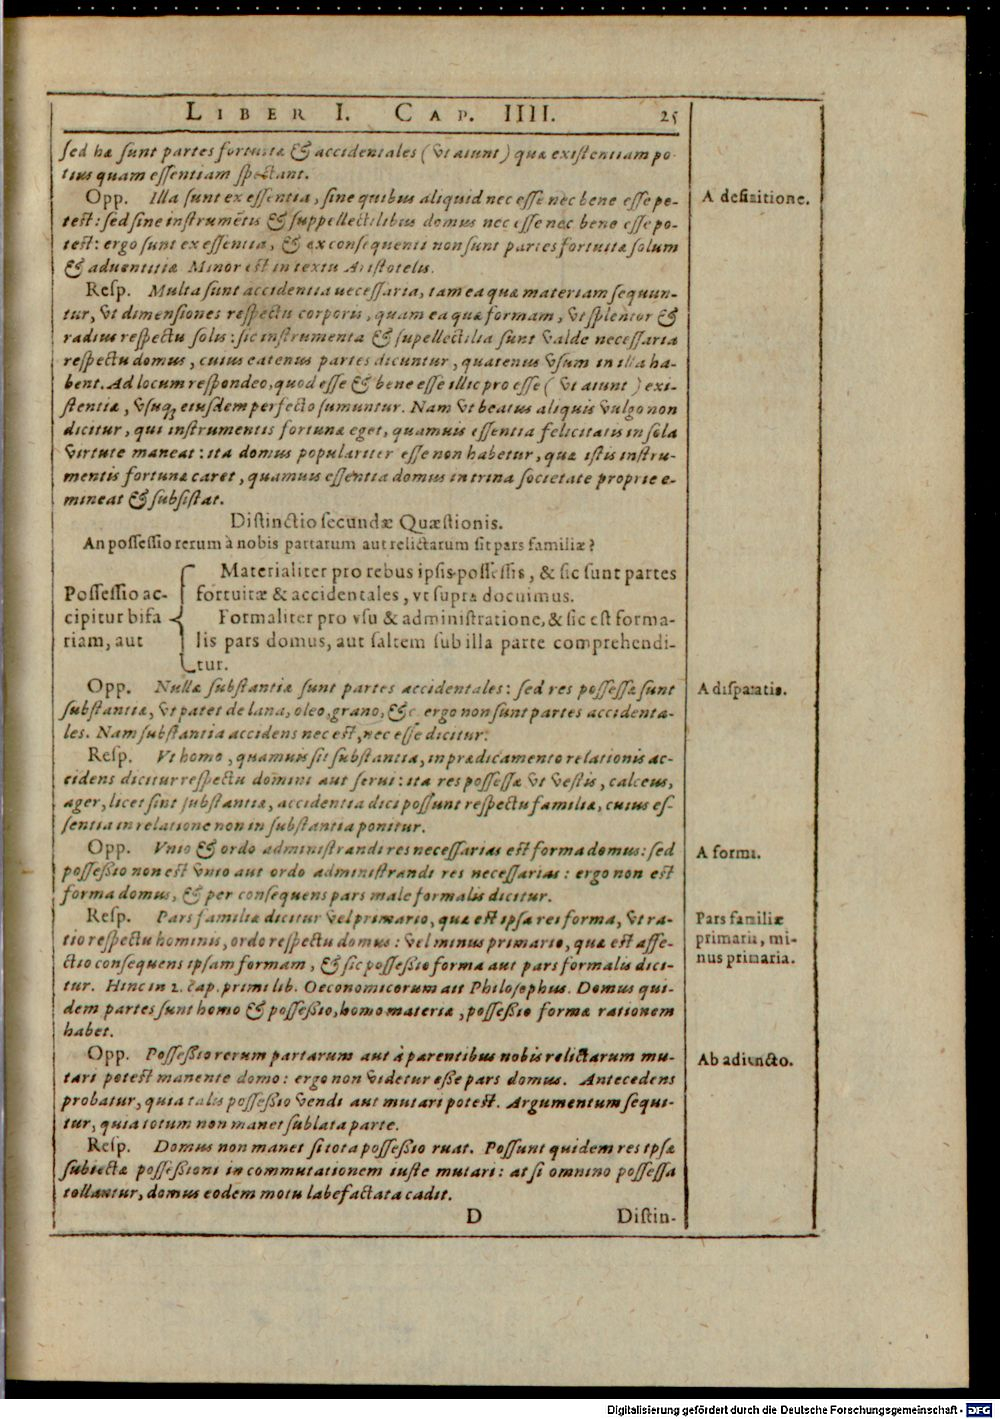 LIBER I. CAP. IIII. 25
sed hæ sunt partes fortuitæ & accidentales (vt aiunt) quæ existentiam po-
tius quam essentiam spectant.
Opp. Illa sunt ex essentia, sine quibus aliquid nec esse nec bene esse po-
test: sed sine instrumẽtis & suppellectilibus domus nec esse nec bene esse po-
test: ergo sunt ex essentia, & ex consequenti non sunt partes fortuitæ solum
& aduentitiæ Minor est in textu Aristotelis.
A definitione.
Resp. Multa sunt accidentia necessaria, tam ea quæ materiam sequun-
tur, vt dimensiones respectu corporis, quam ea quæ formam, vt splendor &
radius respectu solis: sic instrumenta & supellectilia sunt valde necessaria
respectu domus, cuius eatenus partes dicuntur, quatenus vsum in illa ha-
bent. Ad locum respondeo, quod esse & bene esse illic pro esse (vt aiunt) exi-
stentiæ, vsuq; eiusdem perfecto sumuntur. Nam vt beatus aliquis vulgo non
dicitur, qui instrumentis fortunæ eget, quamuis essentia felicitatis in sola
virtute maneat: ita domus populariter esse non habetur, quæ istis instru-
mentis fortunæ caret, quamuis essentia domus in trina societate proprie e-
mineat & subsistat.
Distinctio secundæ Quæstionis.
An possessio rerum à nobis partarum aut relictarum sit pars familiæ?
Possessio ac-
cipitur bifa
riam, aut
Materialiter pro rebus ipsis possessis, & sic sunt partes
fortuitæ & accidentales, vt supra docuimus.
Formaliter pro vsu & administratione, & sic est forma-
lis pars domus, aut saltem sub illa parte comprehendi-
tur.
Opp. Nullæ substantiæ sunt partes accidentales: sed res possessæ sunt
substantiæ, vt patet de lana, oleo, grano, &c. ergo non sunt partes accidenta-
les. Nam substantia accidens nec est, nec esse dicitur.
A disparatis.
Resp. Vt homo, quamuis sit substantia, in prædicamento relationis ac-
cidens dicitur respectu domini aut serui: ita res possessæ vt vestis, calceus,
ager, licet sint substantiæ, accidentia dici possunt respectu familiæ, cuius es-
sentia in relatione non in substantia ponitur.
Opp. Vnio & ordo administrandi res necessarias est forma domus: sed
possessio non est vnio aut ordo administrandi res necessarias: ergo non est
forma domus, & per consequens pars male formalis dicitur.
A forma.
Resp. Pars familiæ dicitur vel primario, quæ est ipsa rei forma, vt ra-
tio respectu hominis, ordo respectu domus: vel minus primario, quæ est affe-
ctio consequens ipsam formam, & sic possessio forma aut pars formalis dici-
tur. Hinc in 2. cap. primi lib. Oeconomicorum ait Philosophus. Domus qui-
dem partes sunt homo & possessio, homo materiæ, possessio formæ rationem
habet.
Pars familiæ
primaria, mi-
nus primaria.
Opp. Possessio rerum partarum aut à parentibus nobis relictarum mu-
tari potest manente domo: ergo non videtur esse pars domus. Antecedens
probatur, quia talis possessio vendi aut mutari potest. Argumentum sequi-
tur, quia totum non manet sublata parte.
Ab adiuncto.
Resp. Domus non manet si tota possessio ruat. Possunt quidem res ipsæ
subiectæ possessioni in commutationem iuste mutari: at si omnino possessa
tollantur, domus eodem motu labefactata cadit.
D Distin-
Digitalisierung gefördert durch die Deutsche Forschungsgemeinschaft - DFG